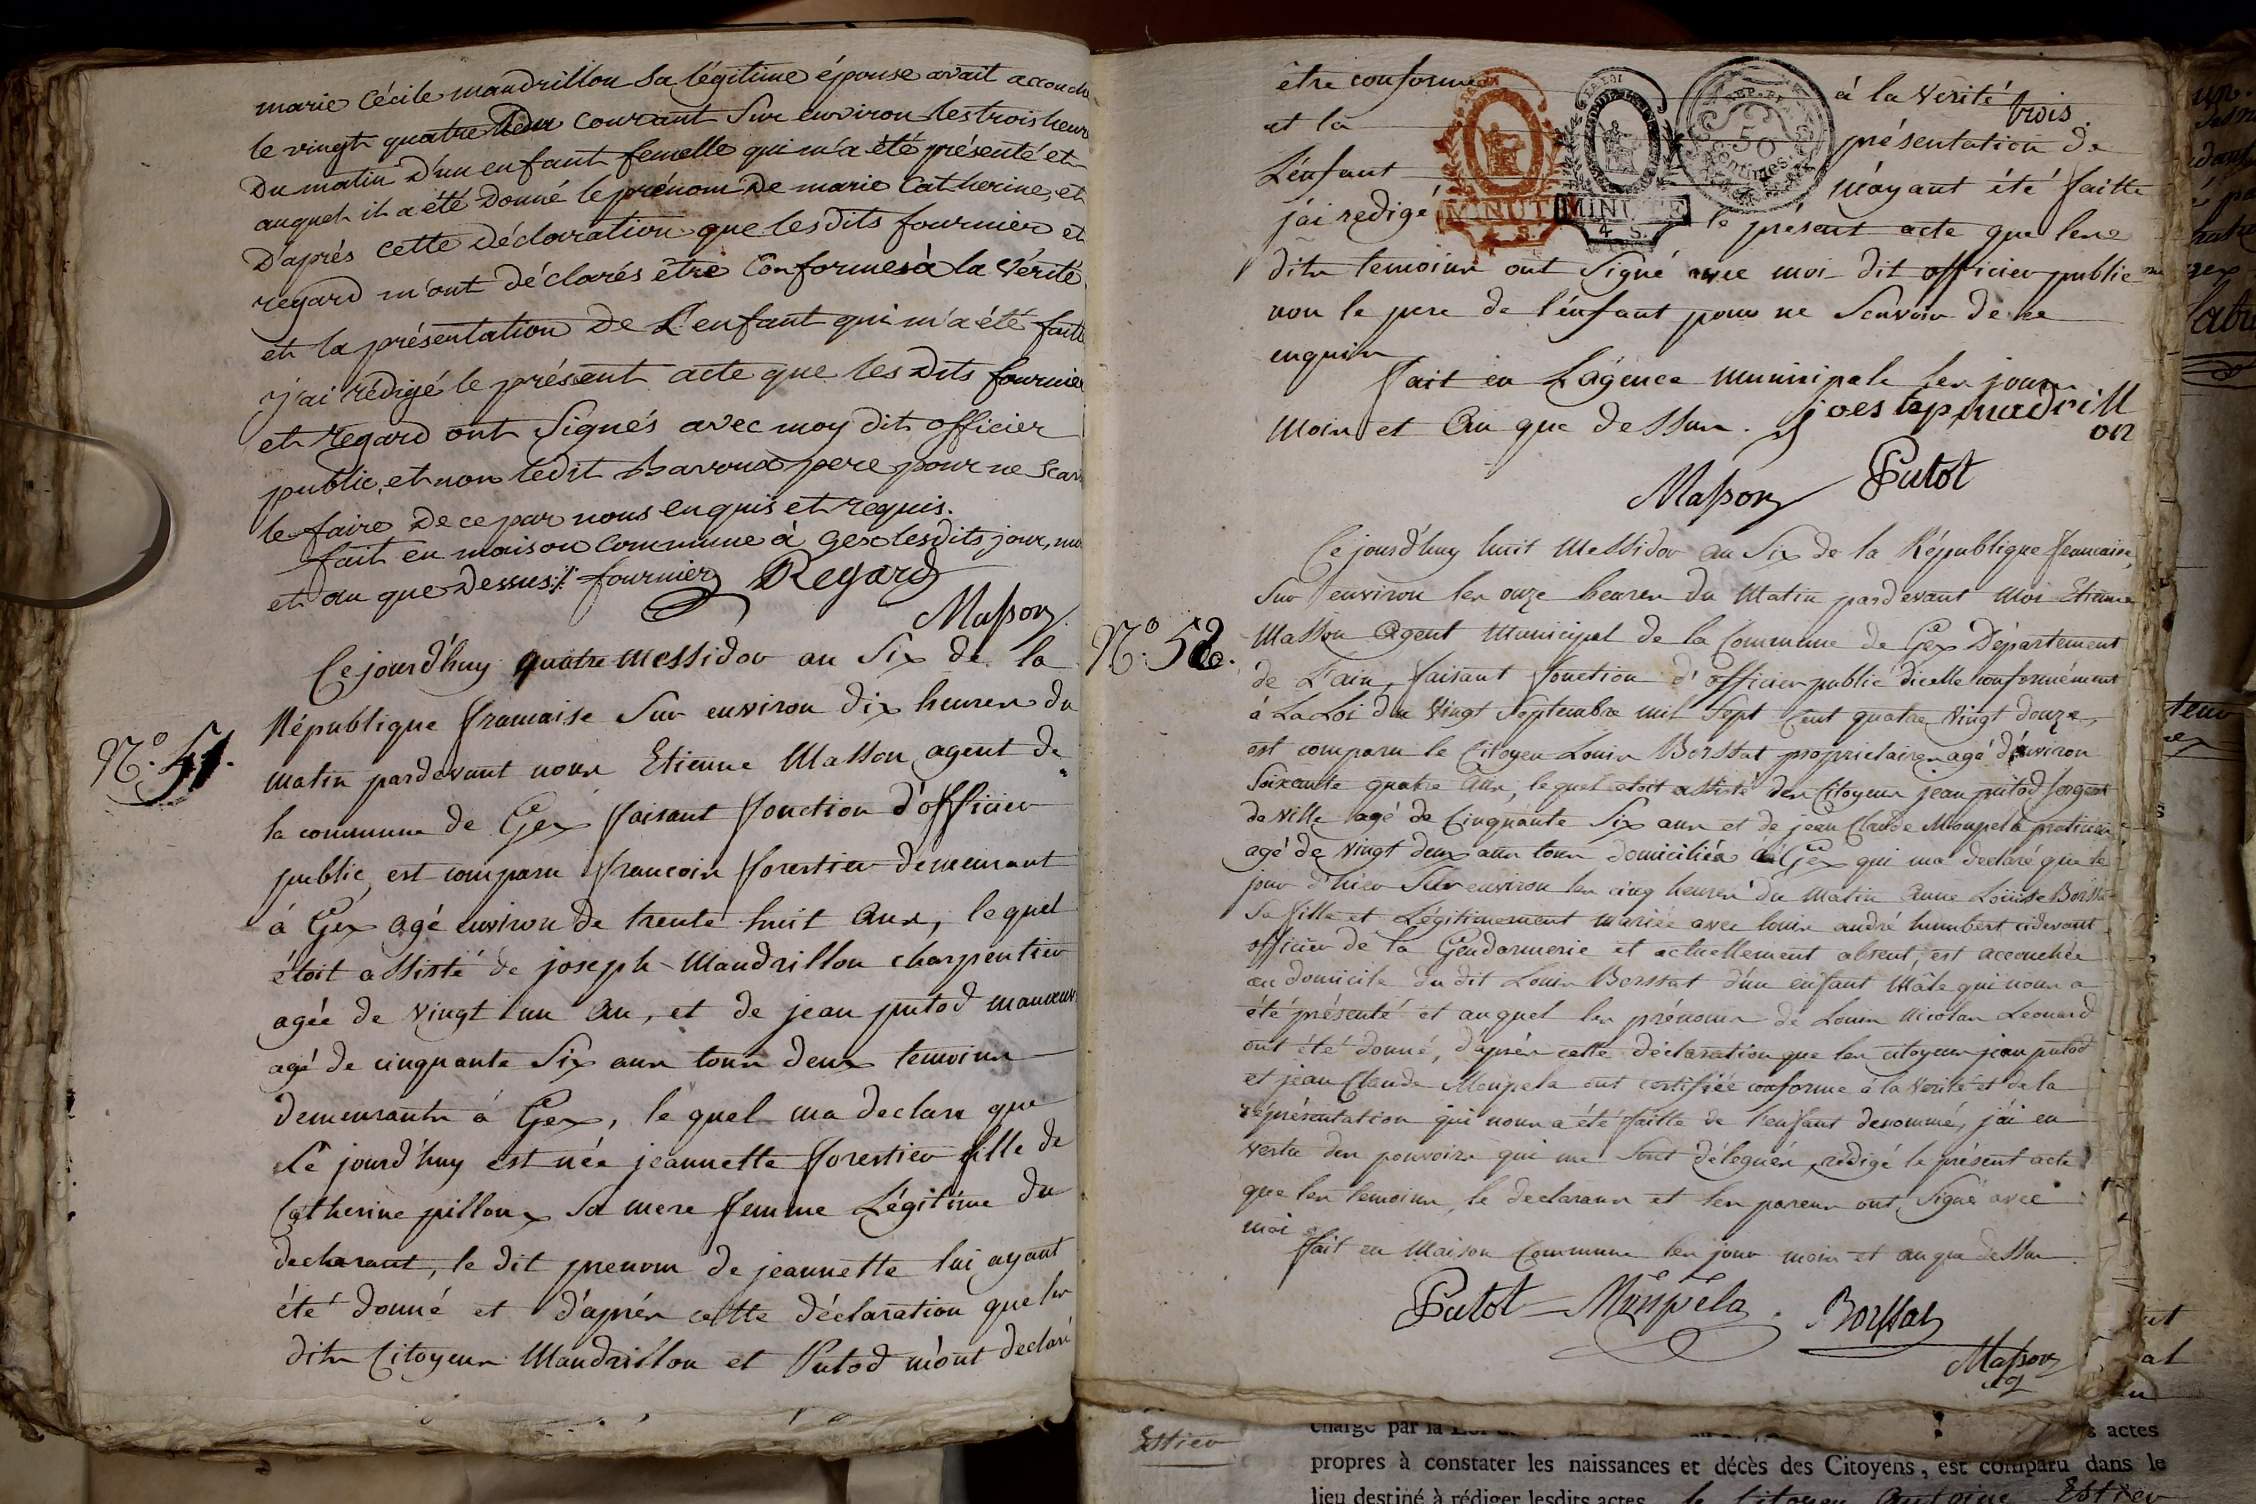 marie Cécile mandrillon Sa légitime épouse avait accouch
le vingt quatre du courant Sur environ les trois heur
Du matin D'un enfant femelle qui m'a été présenté et
auquel il a été Donné le prénom De marie Catherine, et
D'après cette Déclaration que lesdits fournier et
regard m'ont Déclarés être Conformes à la vérité
et la présentation De L'enfant qui m'a été faite
j'ai rédigé le présent acte que les Dits fournier
et regard ont Signés avec moy dit officier
public, et non ledit pere pour ne Scav
le faire De ce par nous enquis et requis.
fait en maison Commune à gex lesdits jour, mo
et an que Dessus ./. fournier Regard
Masson
Ce jourd'huy quatre Messidor an Six de la
République francaise Sur environ dix heures du
N.° 51.
matin pardevant nous Etienne Masson agent de
la commune de Gex faisant fonction d'officier
public, est comparu francois forestier demeurant
à Gex agé environ de trente huit ans, lequel
étoit assisté de joseph Mandrillon charpentier
agée de vingt un an, et de jean putod manœuv
agé de cinquante Six ans tous deux temoins
demeurants à Gex, le quel ma declaré que
Ce jourd'huy est née jeannette forestier fille de
Catherine pilloux Sa mere femme Légitime du
declarant, le dit prenom de jeannette lui ayant
été donné et d'après cette déclaration que les
dits Citoyens Mandrillon et Putod m'ont declaré
être conforme à la vérité
et la présentation de
trois.
L'enfant m'ayant été faitte
j'ai redigé le présent acte que les
MINUTE
4 S.
LA LOI
MINUTE
4 S.
REP. FR.
50
centimes.
dits temoins ont Signé avec moi dit officier public
non le pere de l'énfant pour ne Scavoir de ce
enquis
fait en L'agence municipale les jour
mois et an que dessus. joestep madrill
on
Masson Putot
Ce jourd'huy huit Messidor an Six de la République francaise,
Sur environ les onze heures du Matin pardevant Moi Etienne
N.° 52.
Masson Agent Municipal de la Commune de Gex Département
de L'ain, faisant fonction d'officier public dicelle conformément
à La Loi du Vingt Septembre mil Sept Cent quatre Vingt douze,
est comparu le Citoyen Louis Borssat propriétaire agé d'environ
Soixante quatre ans, lequel etoit assisté des Citoyens jean putod Sergent
de Ville agé de Cinquante Six ans et de jean Claude Monpela praticien
agé de vingt deux ans tous domiciliés à Gex qui ma declaré que le
jour d'hier Sur environ les cinq heures du Matin Anne Louise Borssa
Sa fille et Légitimement mariée avec louis andré humbert cidevant
officier de la Gendarmerie et actuellement absent, est accouchée
au domicile du dit Louis Borssat d'un enfant Mâle qui nous a
été présenté et auquel les prénoms de Louis Nicolas Leonard
ont été donné, d'après cette déclaration que les citoyens jean putod
et jean Claude Monpela ont certifiée conforme à la vérité et de la
représentation qui nous a été faitte de l'enfant denommé, j'ai en
vertu des pouvoirs qui me Sont délégués, rédigé le présent acte
que les temoins, le declarans et les parens ont Signé avec
moi
fait en Maison Commune les jour mois et an que dessus.
Putot Monpela. Borssat
Masson
ag
Estier
chargé par la Loi
s actes
propres à constater les naissances et décès des Citoyens, est comparu dans le
lieu destiné à rédiger lesdits actes le Citoyen Antoine Estier